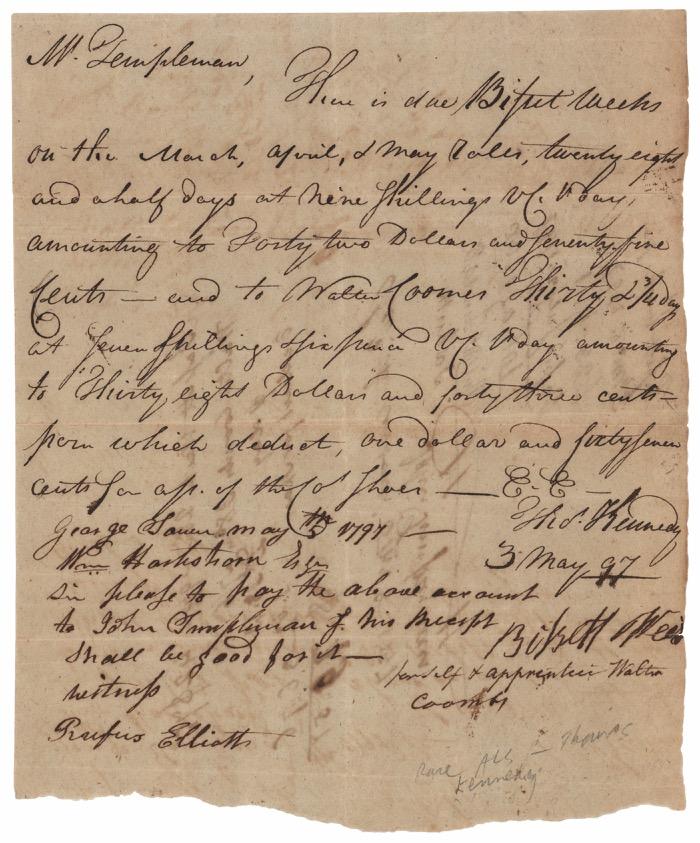 Mr. Templeman,
There is due Bisset Weeks
on the March, april, & May Rolls, twenty eight
and a half days at Nine Shillings VC. ⅌ day,
amounting to Forty two Dollars and Seventy five
Cents — and to Walter Coomes Thirty & 3/4 day
at Seven Shillings & six pence VC. ⅌ day amounting
to Thirty, eight Dollars and forty three cents —
from which deduct, one dollar and sixty seven
cents for a pr. of the Cos. Shoes — E. E —
Thos. Kennedy
George Town may 5th 1797 —
3 May 97
Wm Hartshorn Esqr
Sir please to pay the above account
to John Templeman & his Receipt
Shall be good for it —
Bissett Weeks
for self & apprentice Walter
Coombs
witness
Rufus Elliott
Rare ALS — Thomas
Kennedy